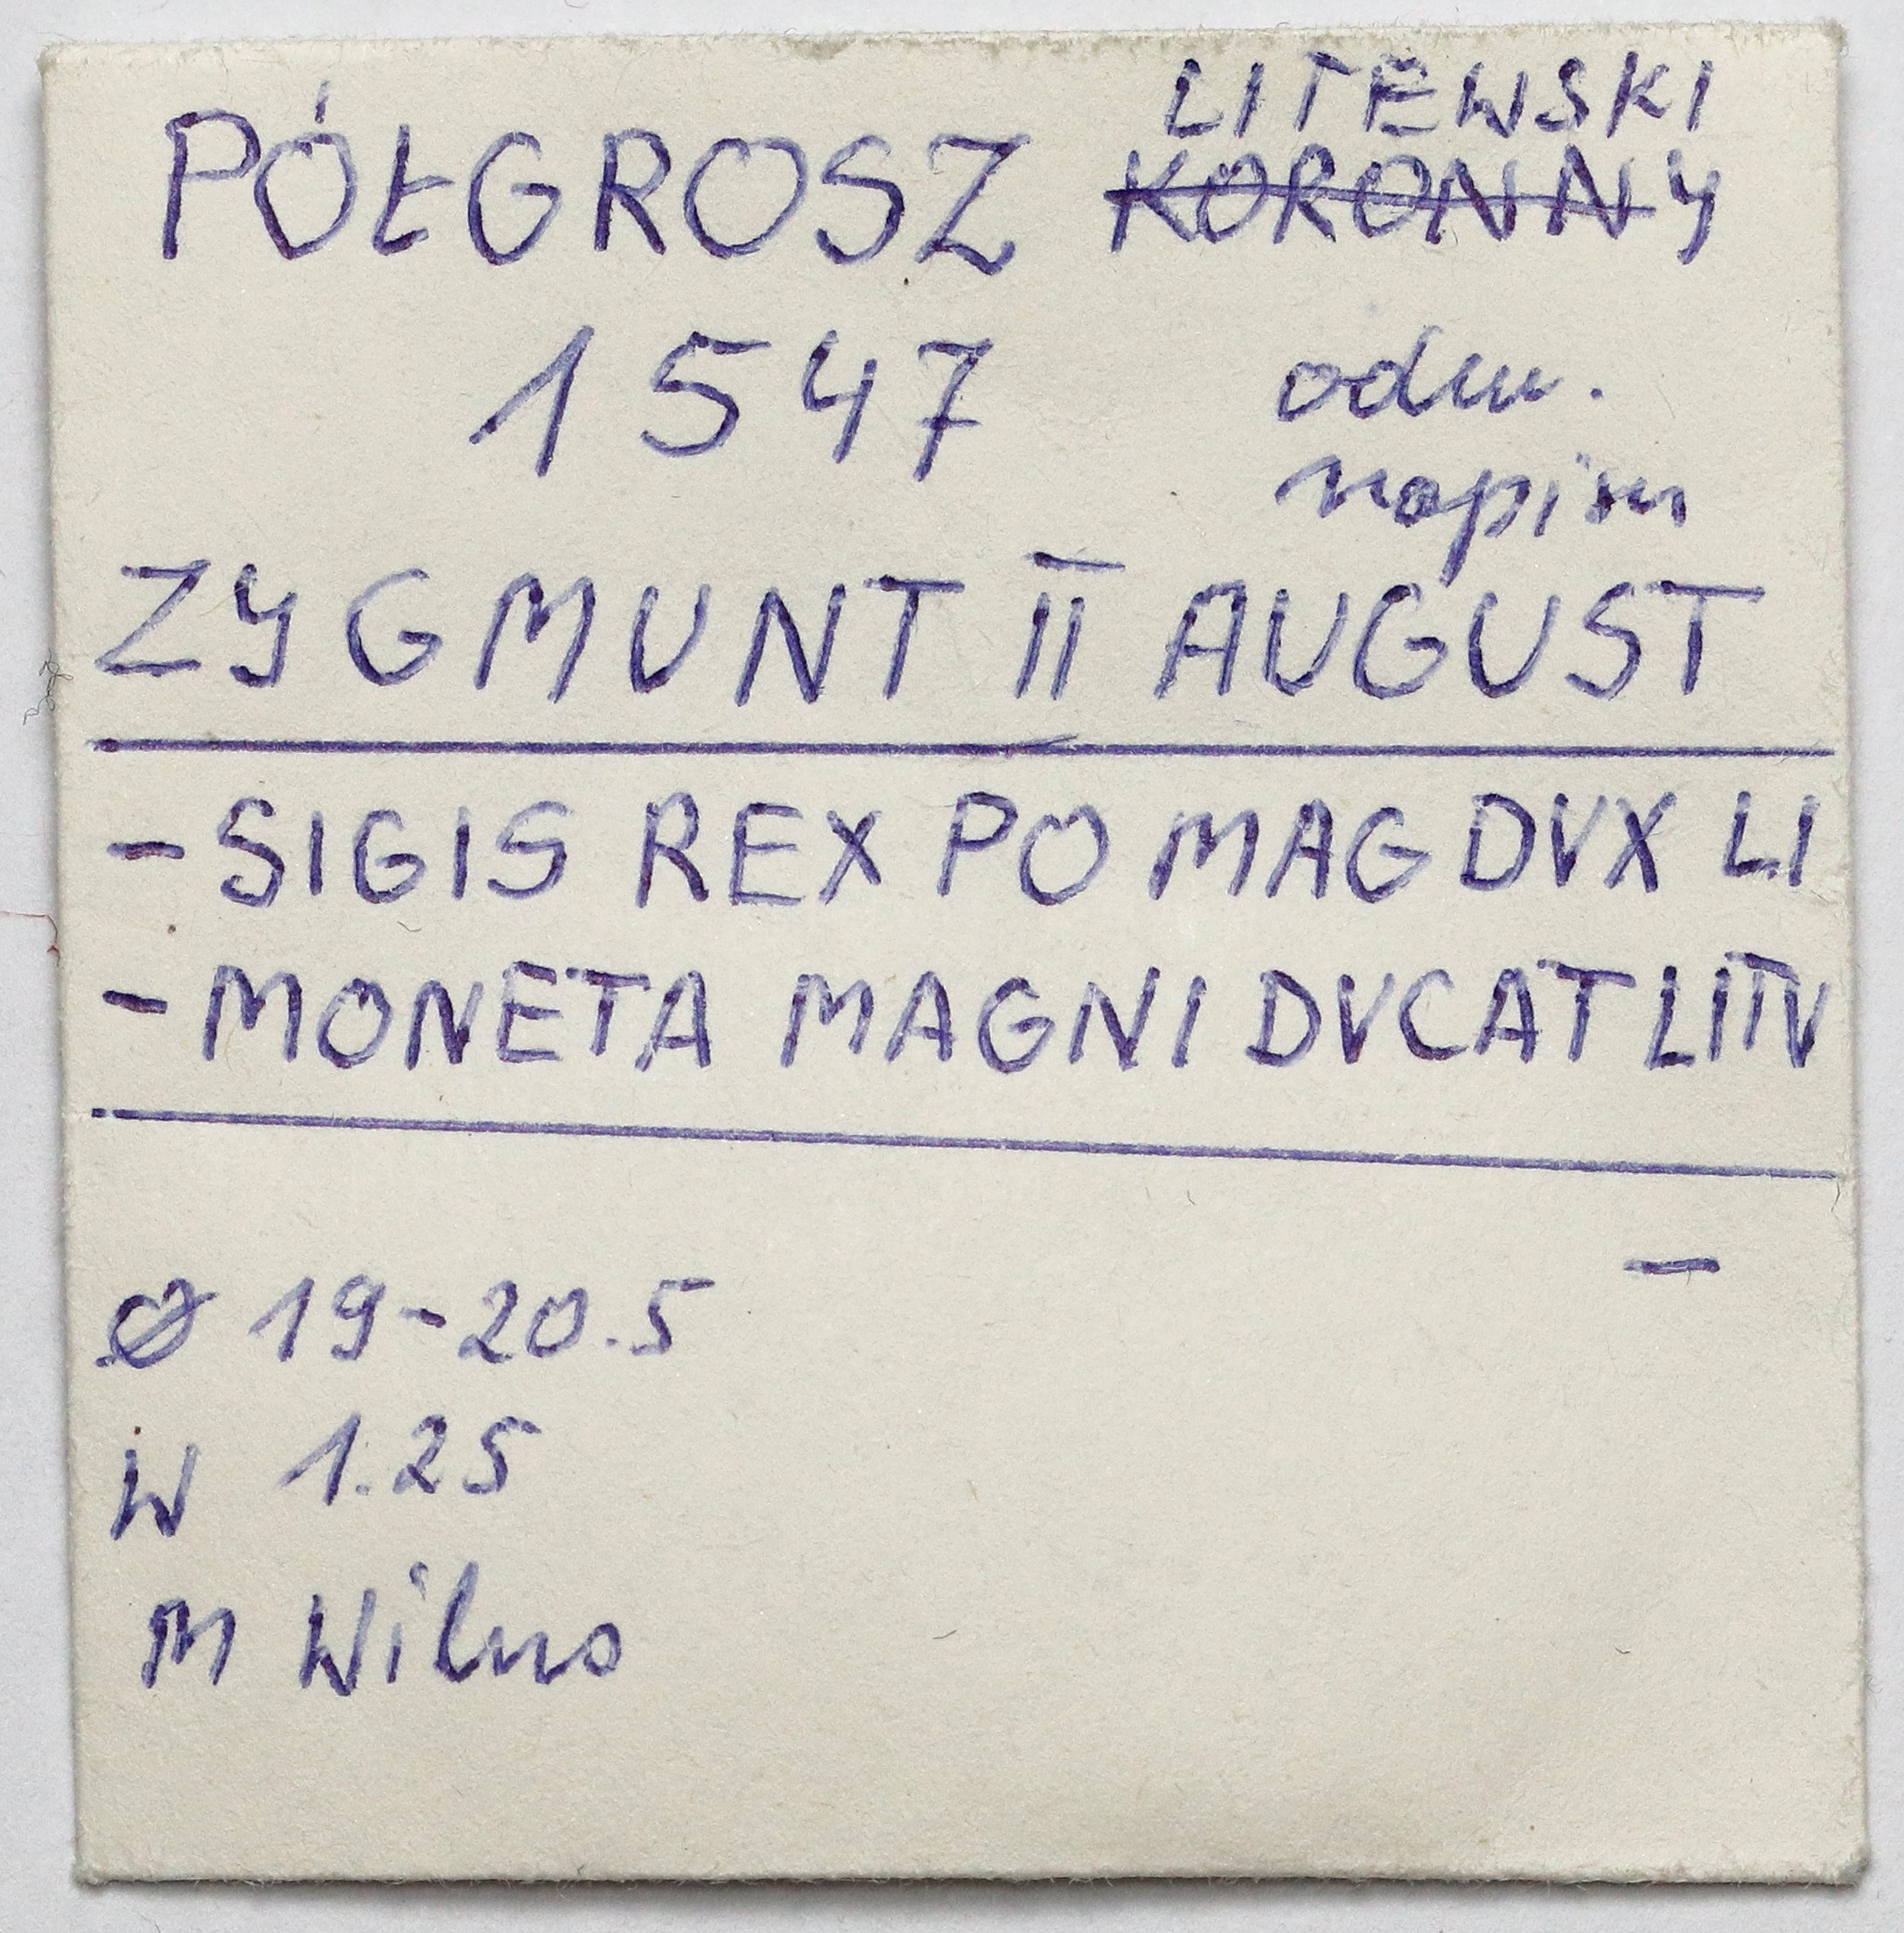 LITEWSKI
PÓŁGROSZ KORONNY
1547 odm.
napisu
ZYGMUNT II AUGUST
- SIGIS REX PO MAG DVX LI
- MONETA MAGNI DVCAT LITV
–
Ø 19-20.5
W 1.25
M Wilno